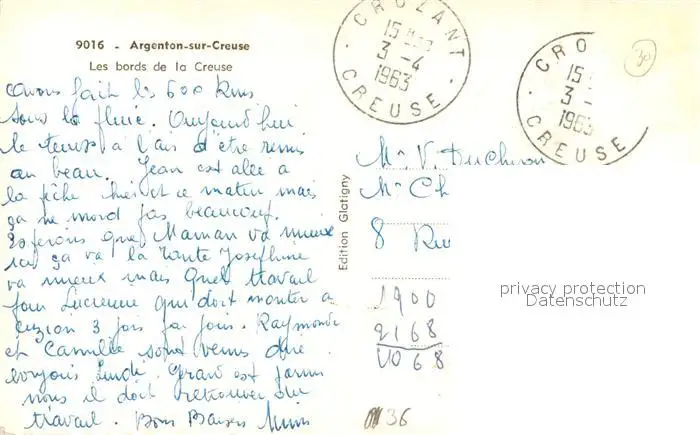 9016 - Argenton-sur-Creuse
Les bords de la Creuse
avons fait les 600 Kms
sous la pluie. Aujourd'hui
le temps à l'air d'être remis
au beau. Jean est allé a
la pêche hier et ce matin mais
ça ne mord pas beaucoup.
Esperons que Maman va mieux
ici ça va la Tante Josephine
va mieux mais quel travail
pour Lucienne qui doit monter a
3 fois par jour. Raymonde
et Camille sont venus dire
bonjour Lundi. Gerard est parmi
nous il doit retrouver du
travail. Bons Baisers
CROZANT
15 H
3 - 4
1963
CREUSE
CRO
15
3 -
1963
CREUSE
30
Edition Glatigny
Mr V.
Mr Ch
8 Rue
1900
2168
4068
36
privacy protection
Datenschutz